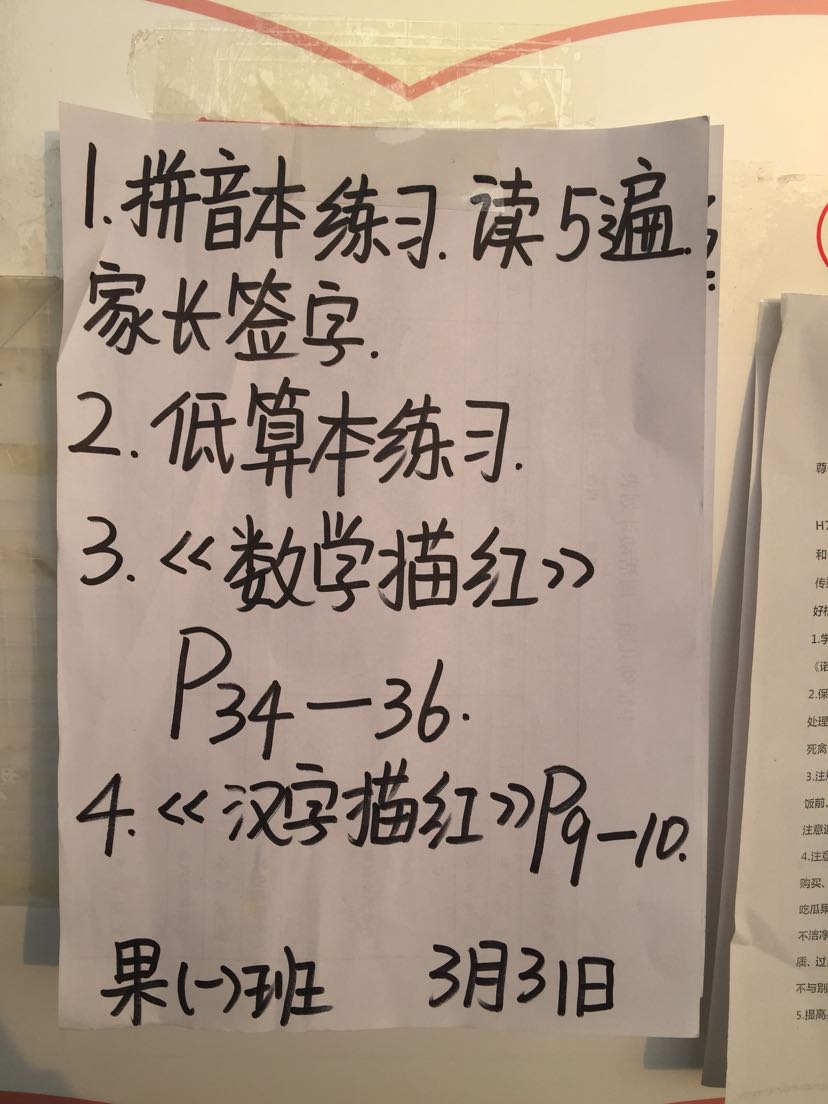 1.拼音本练习.读5遍.
家长签字.
2.低算本练习.
3.《数学描红》
P34—36.
4.《汉字描红》P9—10.
果(一)班 3月31日
尊
H7
和
传
好
1.学
《诺
2.保
处理
死禽
3.注
饭前、
注意
4.注意
购买、
吃瓜果
不洁净
质、过
不与别
5.提高